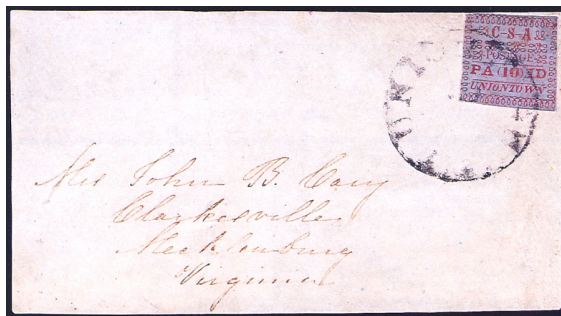 C-S-A
POSTAGE
PA (10) ID
UNIONTOWN
UNIO
Mrs John B. Cary
Clarkesville
Mecklenburg
Virginia